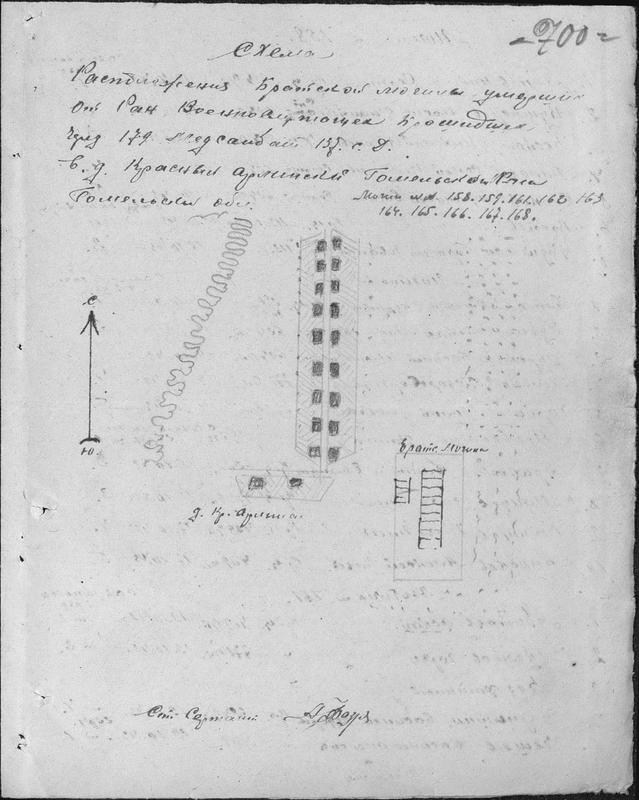 - 700 -
Схема
Расположения Братской могилы умерших
от Ран Военнослужащих
через 179 Медсанбат с. д.
в д. Красный Армейский Гомельской
Гомельской обл.
Могил №№ 158. 159. 161. 162 163
164. 165. 166. 167. 168.
С.
Ю
Братс. Могила
д. Кр. Армеец.
Ст. Сержант